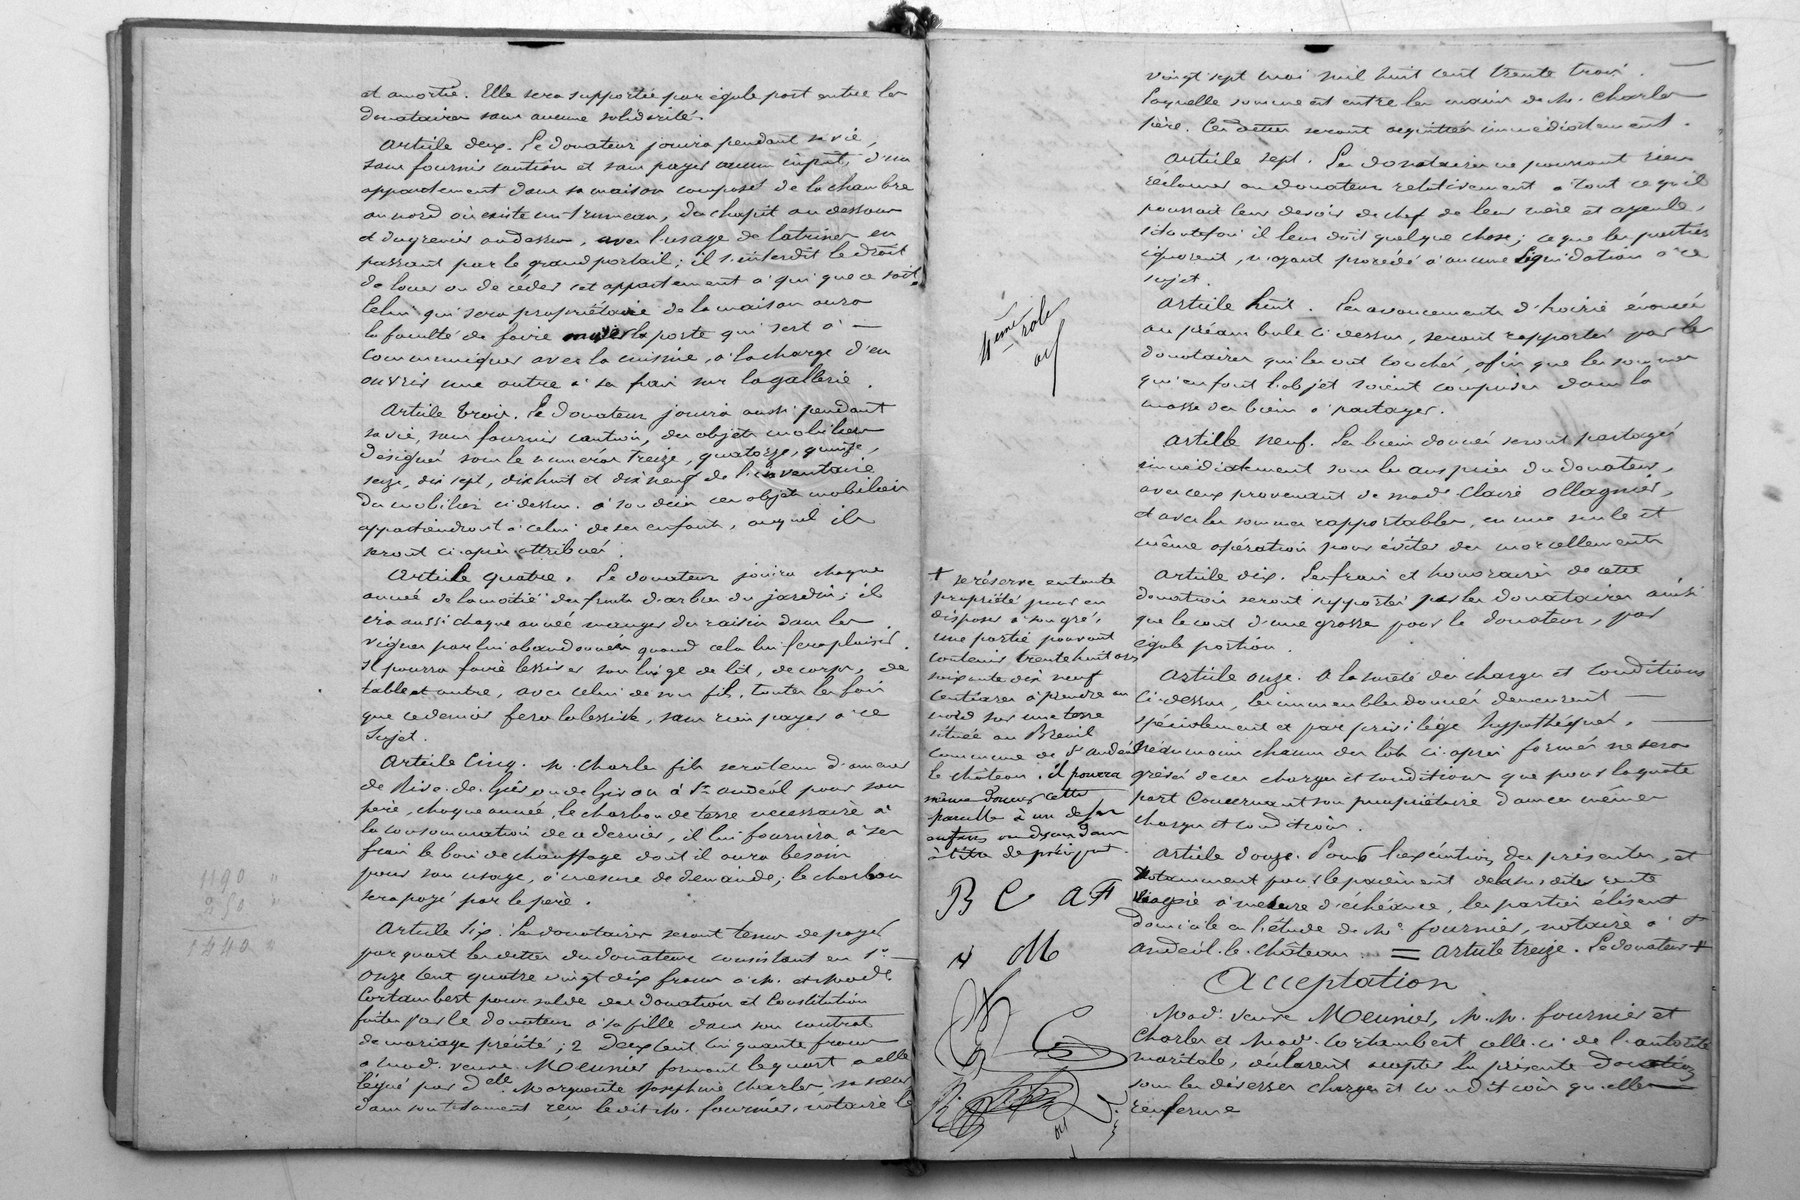 et amortie. Elle sera supportée par égale part entre les
donataires sans aucune solidarité.
Article deux. Le donateur jouira pendant sa vie,
sans fournir caution et sans payer aucun impôt, d'un
appartement dans sa maison composé de la chambre
au nord où existe un trumeau, du chapit au dessous
et du grenier au dessus, avec l'usage de latrines en
passant par le grand portail; il s'interdit le droit
de louer ou de céder cet appartement à qui que ce soit.
Celui qui sera propriétaire de la maison aura
la faculté de faire murer la porte qui sert à —
communiquer avec la cuisine, à la charge d'en
ouvrir une autre à ses frais sur la gallerie.
Article trois. Le donateur jouira aussi pendant
sa vie, sans fournir caution, des objets mobiliers
désignés sous les numéros treize, quatorze, quinze,
seize, dix sept, dix huit et dix neuf de l'inventaire
du mobilier ci dessus. à son décès ces objets mobiliers
appartiendront à celui de ses enfants, auquel ils
seront ci-après attribués.
Article quatre. Le donateur jouira chaque
année de la moitié des fruits d'arbres du jardin; il
ira aussi chaque année manger du raisin dans les
vignes par lui abandonnées quand cela lui fera plaisir.
Il pourra faire lessiver son linge de lit, de corps, de
table et autre, avec celui de son fils, toutes les fois
que ce dernier fera la lessive, sans rien payer à ce
sujet.
Article cinq. M. Charles fils sera tenu d'amener
de Rive-de-Gier ou de Givors à St andéol pour son
père, chaque année, le charbon de terre nécessaire à
la consommation de ce dernier, il lui fournira à ses
frais le bois de chauffage dont il aura besoin
pour son usage, à mesure de demande; le charbon
sera payé par le père.
Article six. Les donataires seront tenus de payer
par quart les dettes du donateur consistant en 1° —
onze cent quatre vingt dix francs à M. et Made
Cortambert pour solde des donation et constitution
faites par le donateur à sa fille dans son contrat
de mariage précité; 2° Deux cent cinquante francs
à Mad. veuve Meunier formant le quart à elle
légué par Delle Marguerite Josephine Charles sa sœur
dans son testament reçu le dit M. fournier, notaire le
1190 "
250 "
1440 "
vingt sept mai mil huit cent trente trois. —
Laquelle somme est entre les mains de M. Charles
père. Ces dettes seront acquittées immédiatement.
Article sept. Les donataires ne pourront rien
réclamer au donateur relativement à tout ce qu'il
pourrait leur devoir du chef de leur mère et ayeule,
si toutefois il leur doit quelque chose; ce que les parties
ignorent, n'ayant procédé à aucune liquidation à ce
sujet.
Article huit. Les avancements d'hoirie énoncés
au préambule ci dessus, seront rapportés par les
donataires qui les ont touchés, afin que les sommes
qui en font l'objet soient comprises dans la
masse des biens à partager.
Article neuf. Les biens donnés seront partagés
immédiatement sous les auspices du donateur,
avec ceux provenant de made Claire Ollagnier,
et avec les sommes rapportables, en une seule et
même opération pour éviter des morcellements
Article dix. Les frais et honoraires de cette
donation seront supportés par les donataires ainsi
que le coût d'une grosse pour le donateur, par
égale portion.
Article onze. A la sureté des charges et conditions
ci-dessus, les immeubles donnés demeurent —
spécialement et par privilège hypothéqués, —
néanmoins chacun des lots ci-après formés ne sera
grévé de ces charges et conditions que pour la quote
part concernant son propriétaire dans ces mêmes
charges et conditions.
Article douze. Pour l'exécution des présentes, et
notamment pour le paiement de la susdite rente
viagère à mesure d'échéance, les parties élisent
domicile en l'étude de Me fournier, notaire à St
andéol-le-Château .. = Article treize. Le donateur +
Acceptation
Mad. veuve Meunier, M.M. fournier et
Charles et Mad. Cortambert celle-ci de l'autorité
maritale, déclarent accepter la présente donation
sous les diverses charges et conditions qu'elle
renferme
4ème
rôle
+ se réserve en toute
propriété pour en
disposer à son gré,
une partie pouvant
contenir trente huit ares
soixante dix neuf
centiares à prendre au
nord sur une terre
située au Breuil
commune de St andéol
le château. il pourra
même donner cette
parcelle à un de ses
enfans ou descendans
à titre de préciput.
B C A F
M